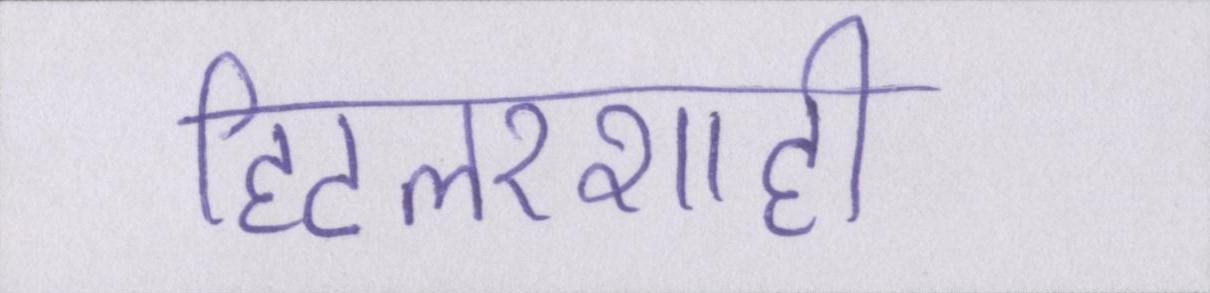 हिटलरशाही